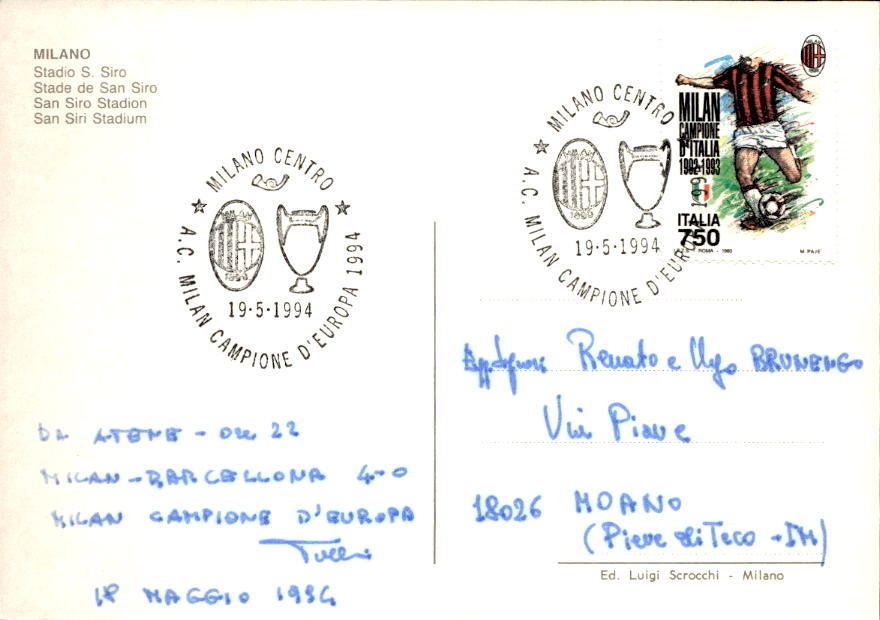 MILANO
Stadio S. Siro
Stade de San Siro
San Siro Stadion
San Siri Stadium
MILANO CENTRO
1899
19·5·1994
A.C. MILAN CAMPIONE D'EUROPA 1994
MILANO CENTRO
1899
19·5·1994
A.C. MILAN CAMPIONE D'EUROPA 199
MILAN
CAMPIONE
D'ITALIA
1992-1993
ITALIA
750
ROMA - 1993
M. PAJE'
DA ATENE - Ore 22
MILAN - BARCELLONA 4-0
MILAN CAMPIONE D'EUROPA
18 MAGGIO 1994
Renato e Ugo BRUNENGO
Via Piave
18026 MOANO
(Pieve di Teco - IM)
Ed. Luigi Scrocchi - Milano